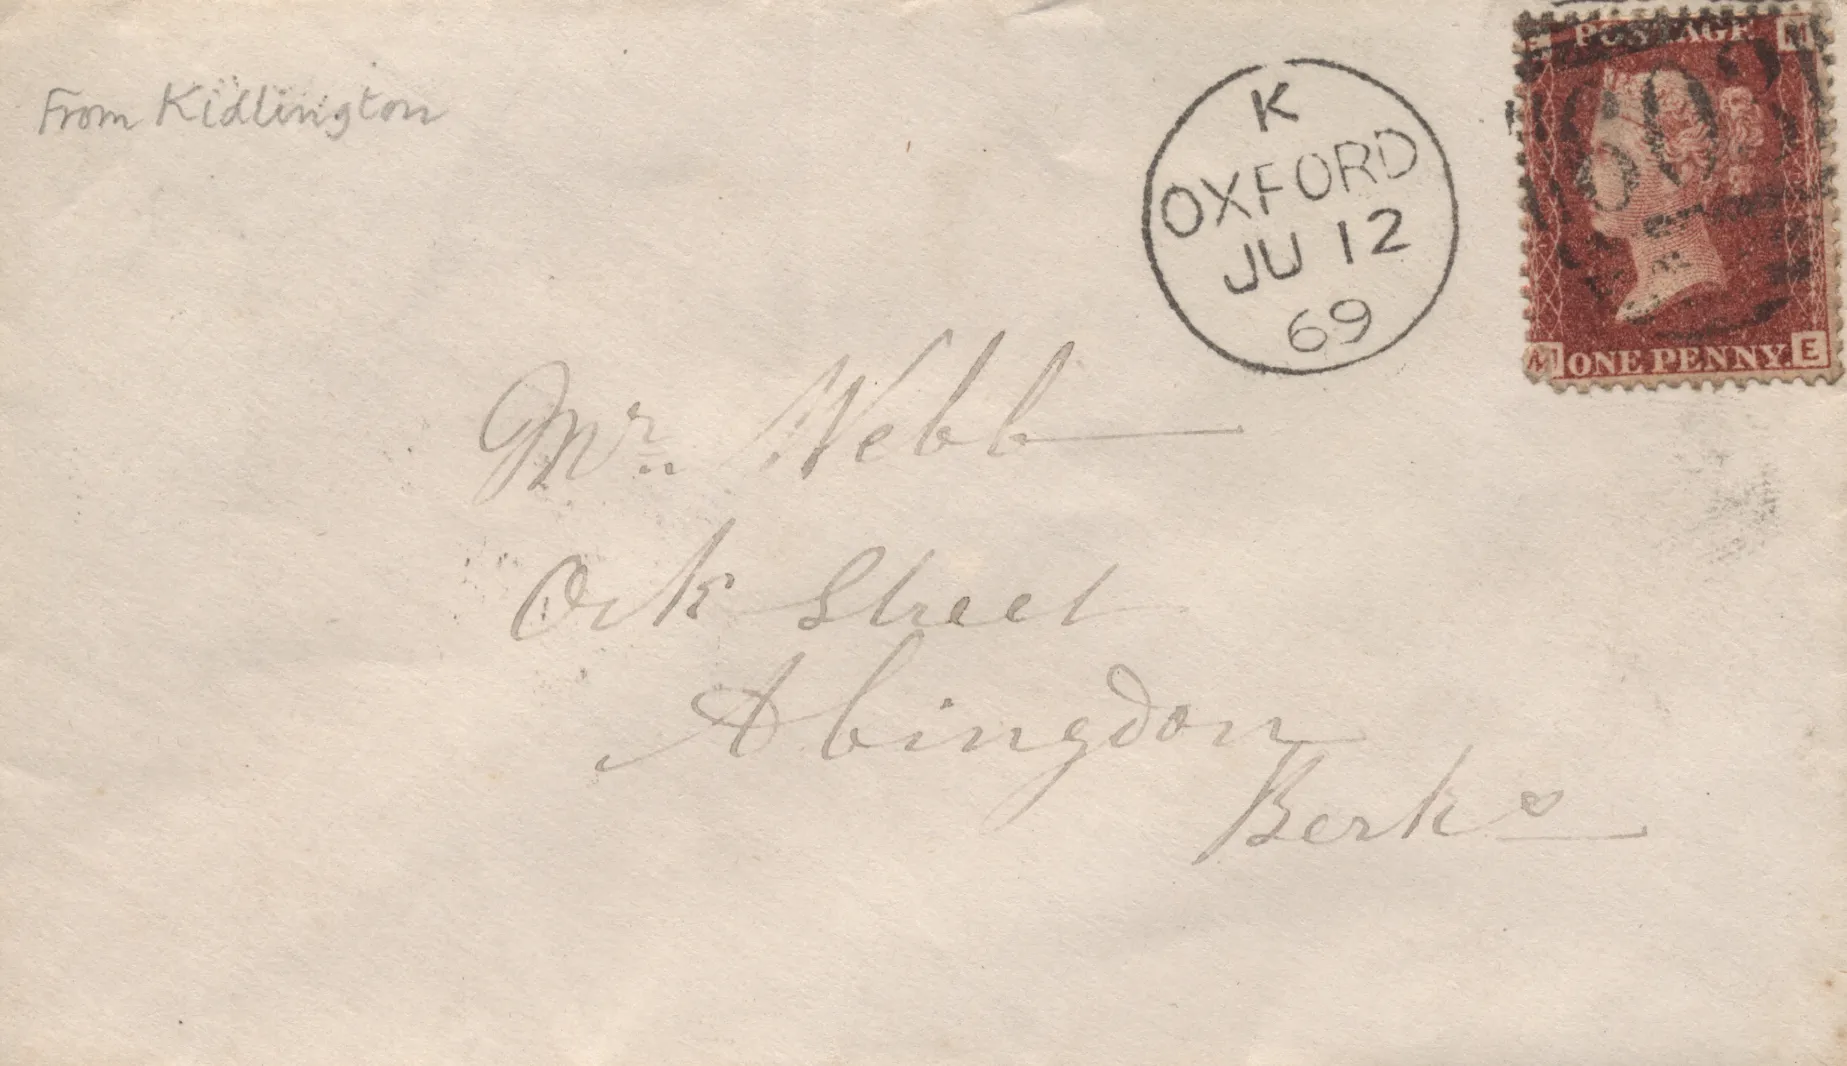 From Kidlington
K
OXFORD
JU 12
69
POSTAGE
603
ONE PENNY.
E
Mr. Webb
Ock Street
Abingdon
Berks